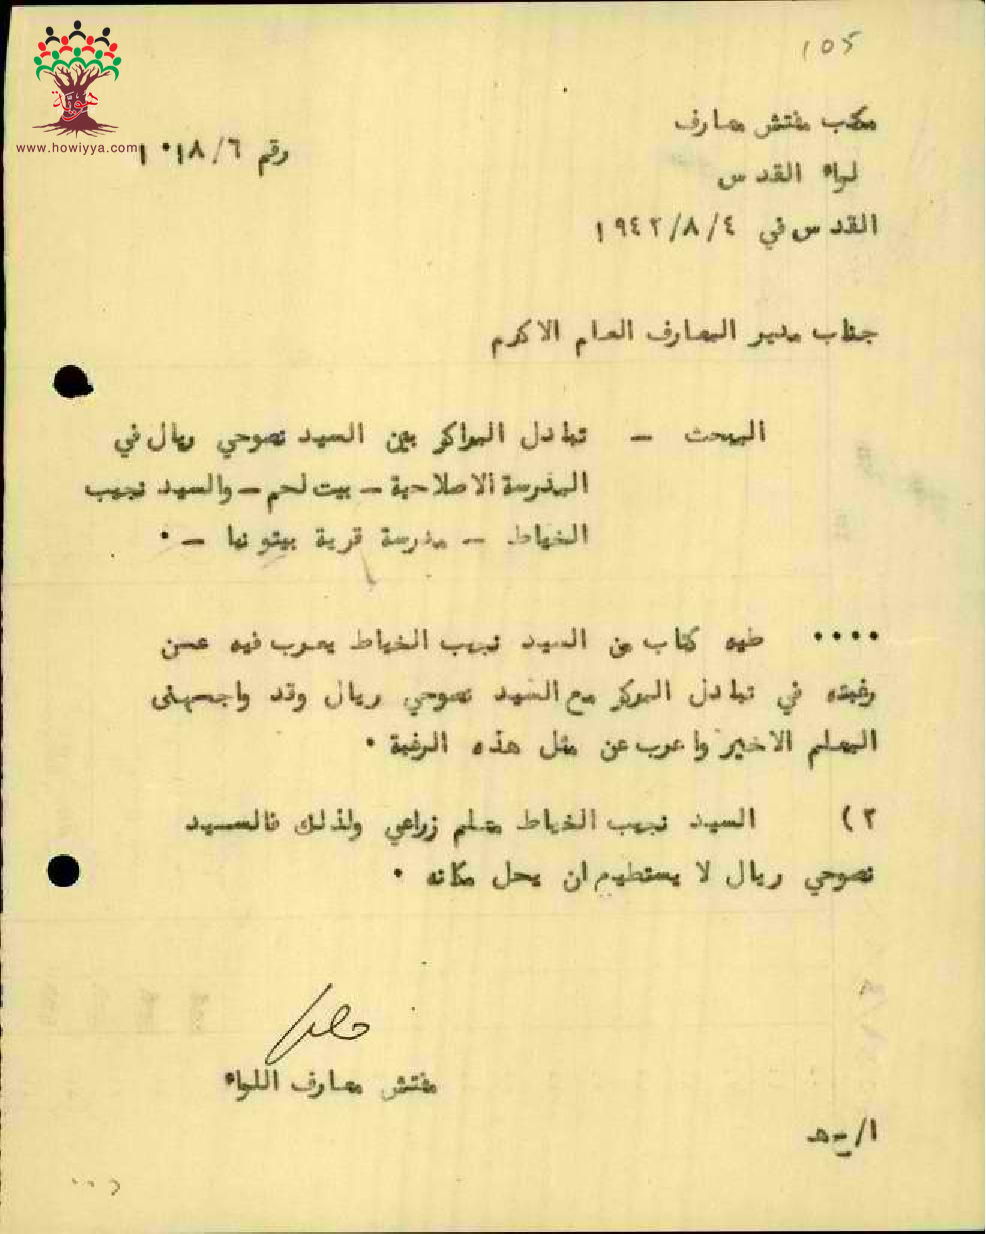 105
هوية
www.howiyya.com
مكتب مفتش معارف
رقم ١٠١٨/٦
لواء القدس
القدس في ١٩٤٢/٨/٤
جناب مدير المعارف العام الاكرم
المبحث — تبادل المراكز بين السيد نصوحي ريال في
المدرسة الاصلاحية — بيت لحم — والسيد نجيب
الخياط — مدرسة قرية بيتونيا — .
.... طيه كتاب من السيد نجيب الخياط يعرب فيه عن
رغبته في تبادل المركز مع السيد نصوحي ريال وقد واجهني
المعلم الاخير واعرب عن مثل هذه الرغبة .
٢) السيد نجيب الخياط معلم زراعي ولذلك فالسيد
نصوحي ريال لا يستطيع ان يحل مكانه .
مفتش معارف اللواء